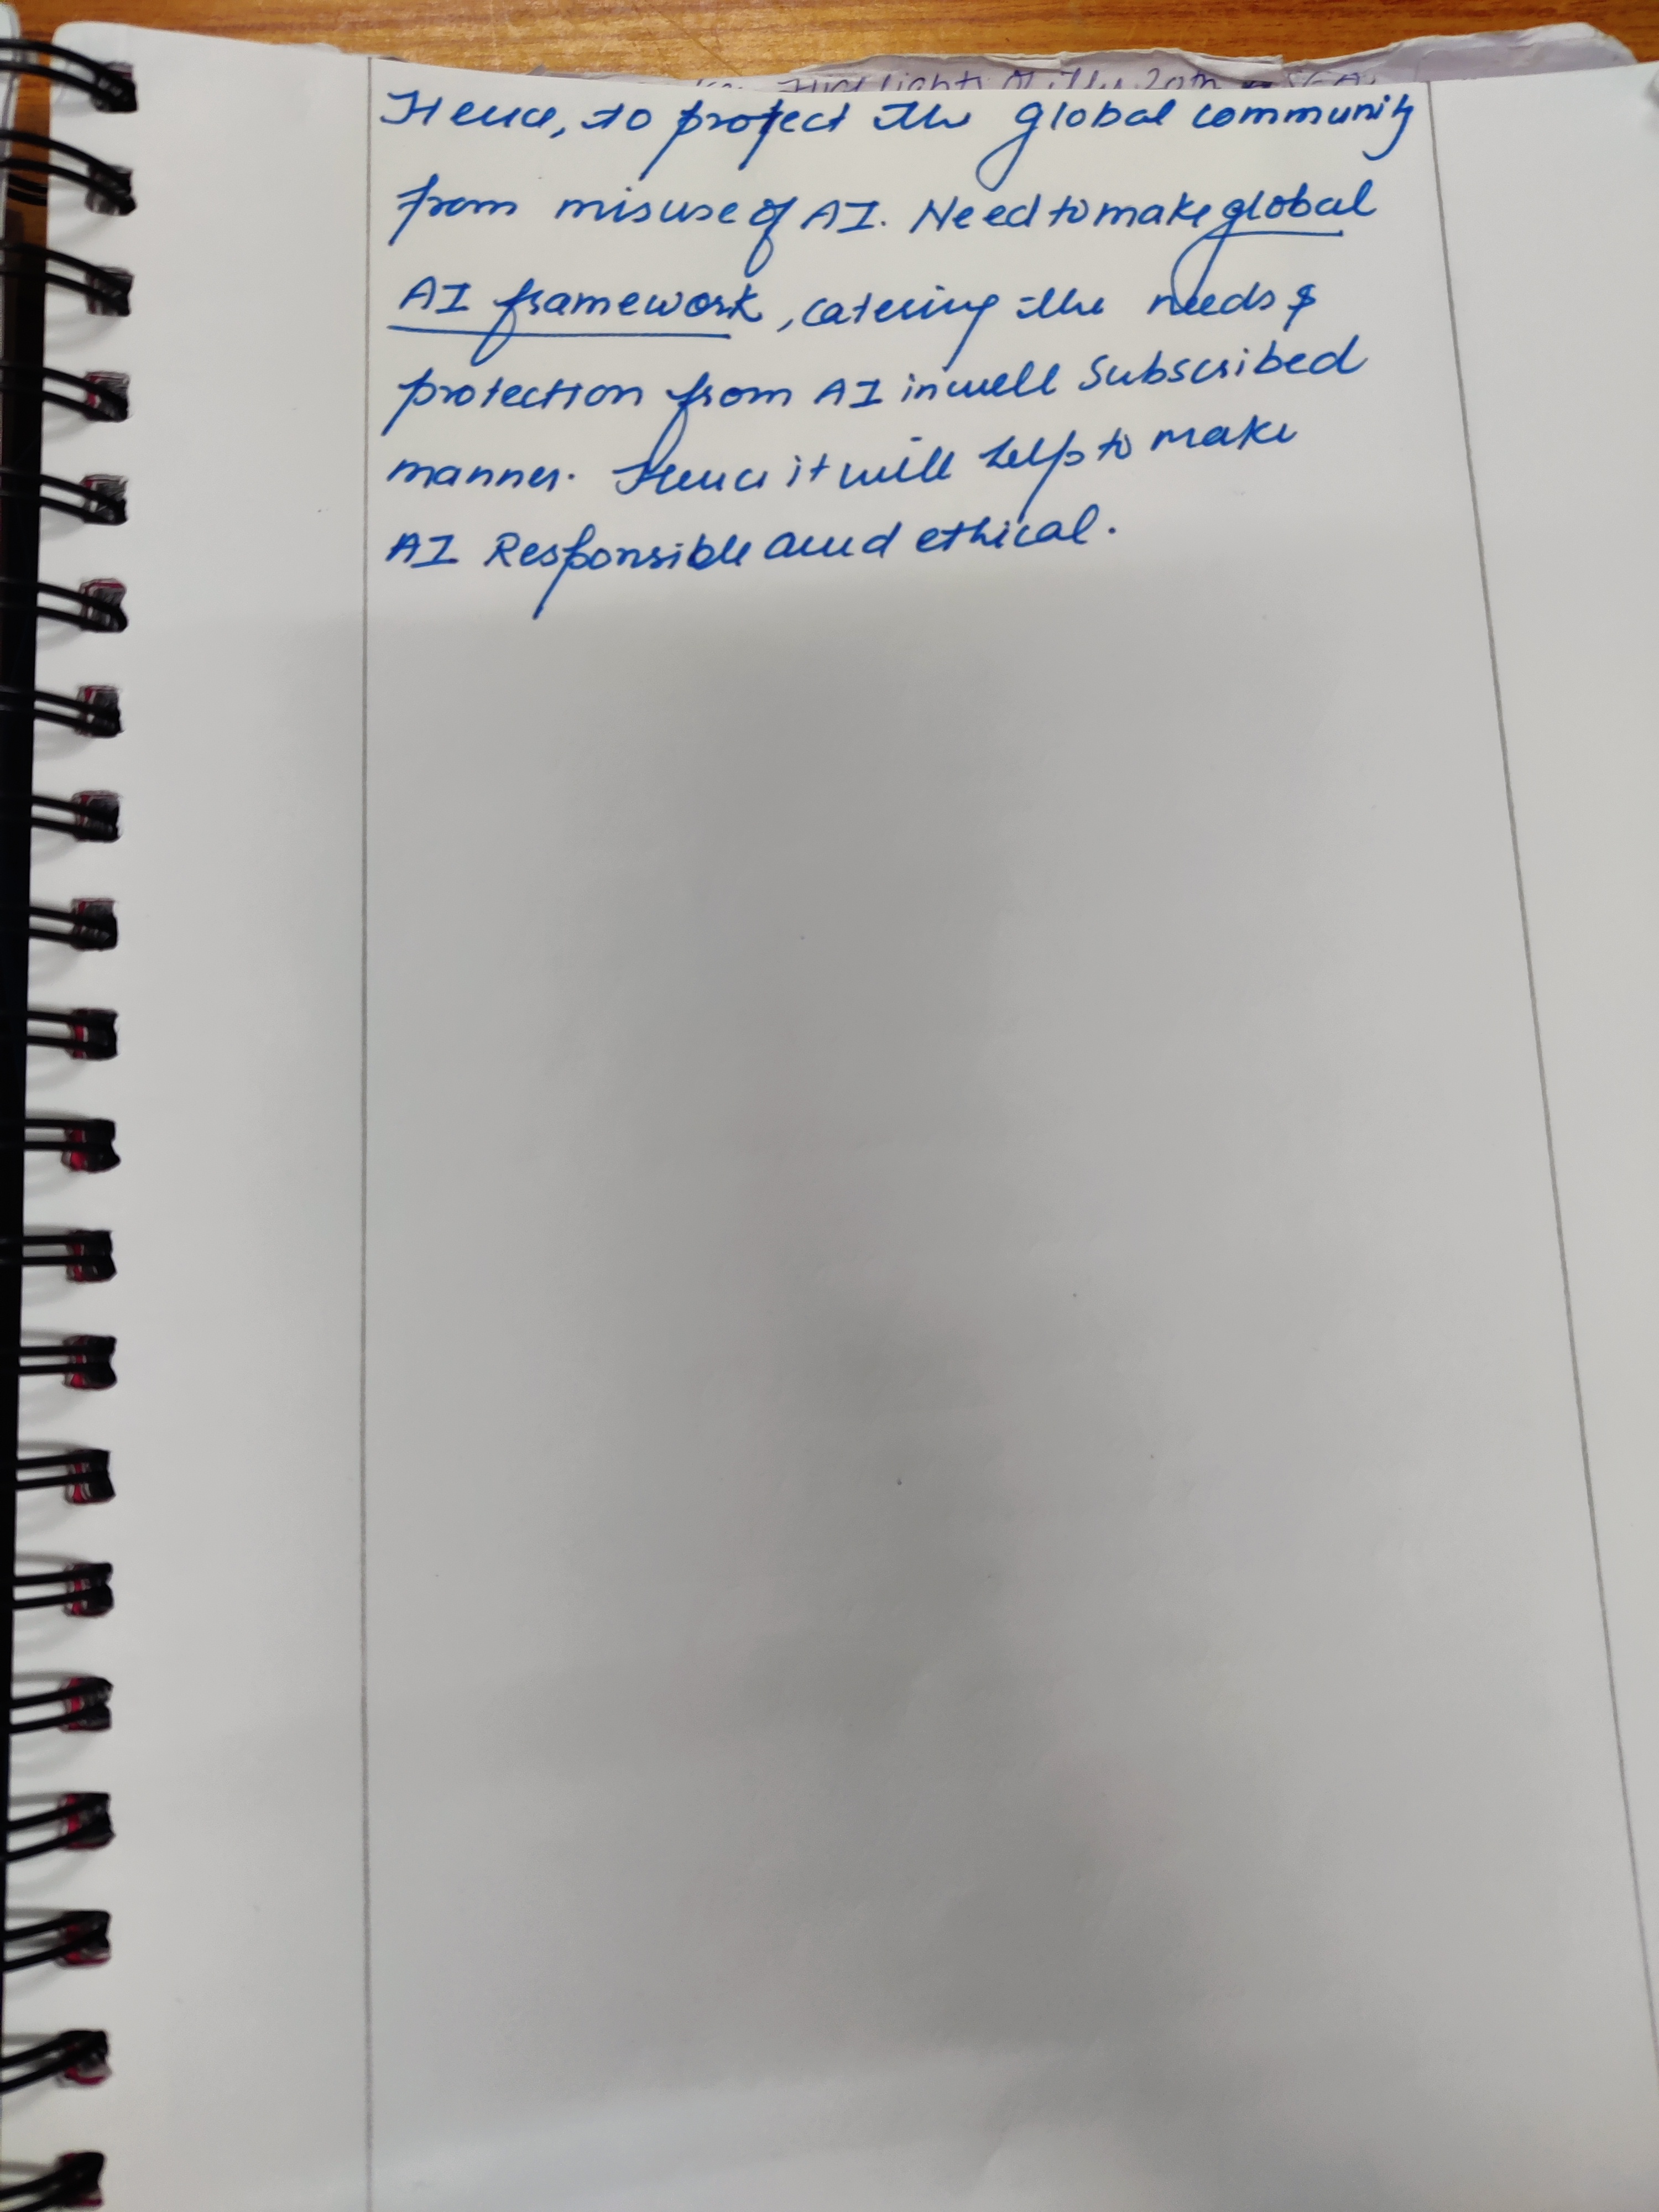 Highlights of the 20th
Hence, to protect the global community
from misuse of AI. Need to make global
AI framework, catering the needs &
protection from AI in well Subscribed
manner. Hence it will help to make
AI Responsible and ethical.